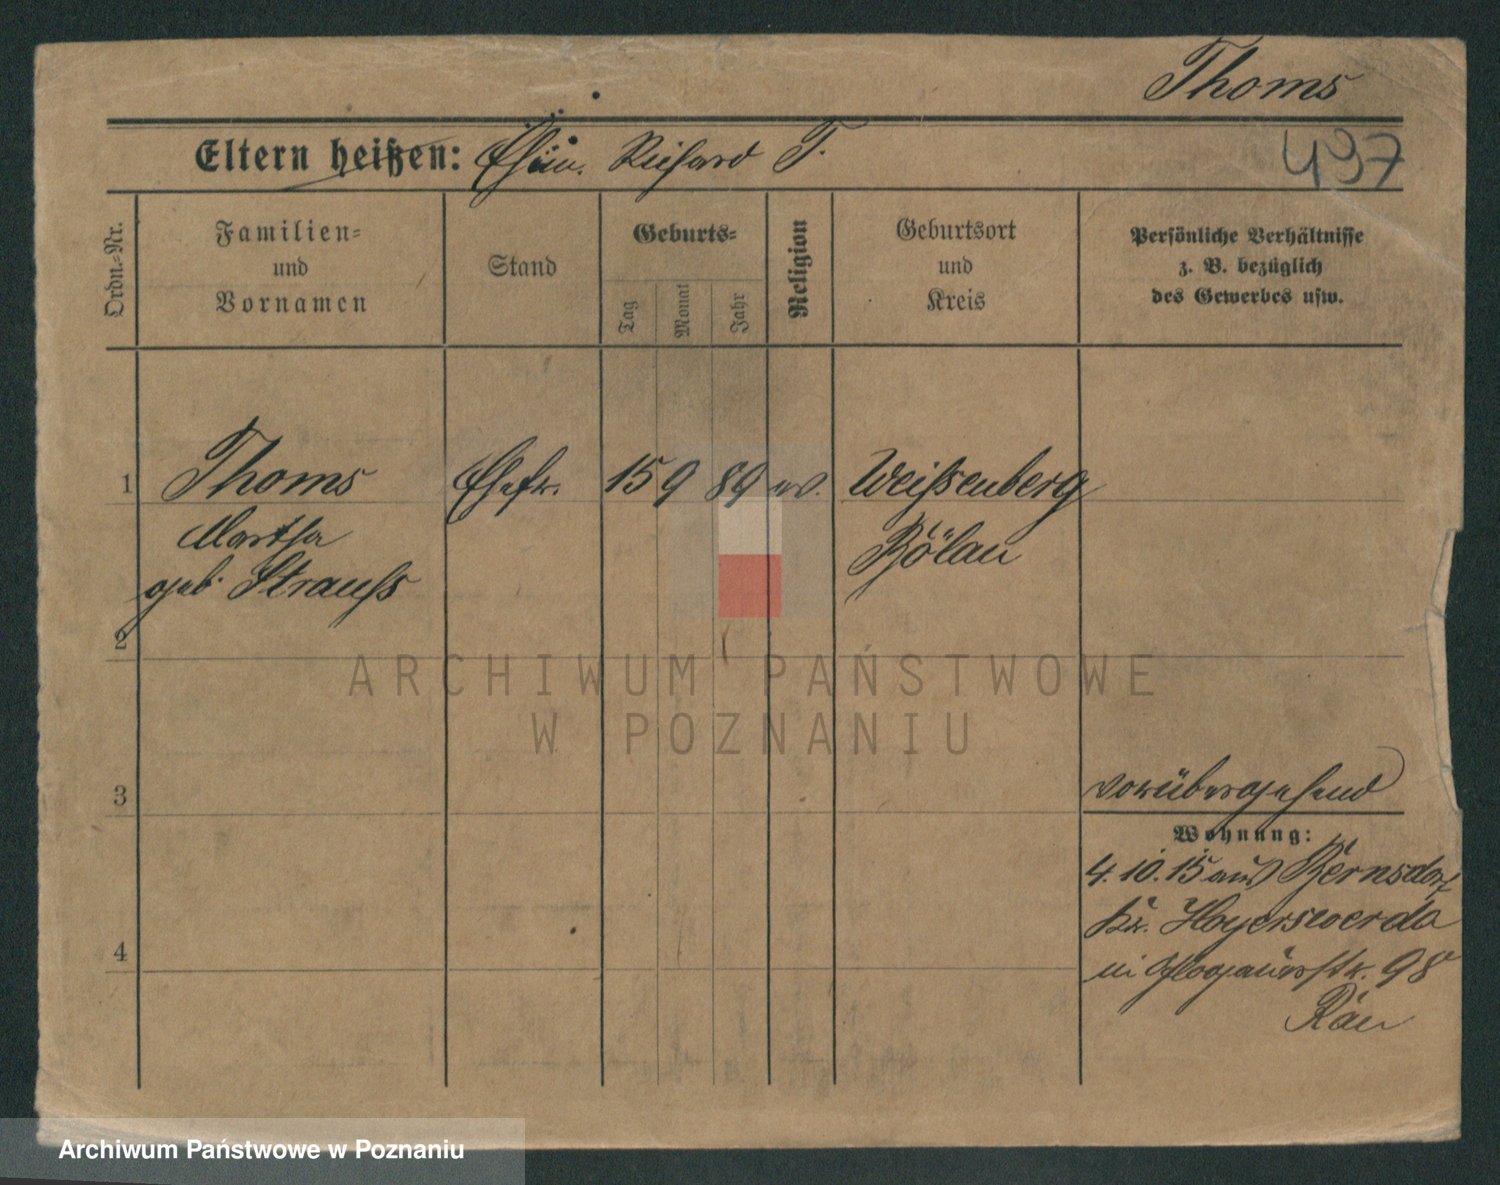 Thoms
Eltern heißen: Ehem. Richard T. 497
Ordn.-Nr.
Familien-
und
Vornamen
Stand
Geburts-
Tag
Monat
Jahr
Religion
Geburtsort
und
Kreis
Persönliche Verhältnisse
z. B. bezüglich
des Gewerbes usw.
1 Thoms Ehefr. 15 9 89 ev. Weißenberg
Martha Löbau
geb. Strauß
2
3 vorübergehend
Wohnung:
4. 10. 15 aus Bernsdorf
Kr. Hoyerswerda
4
in Glogauerstr. 98
ARCHIWUM PAŃSTWOWE
W POZNANIU
Archiwum Państwowe w Poznaniu